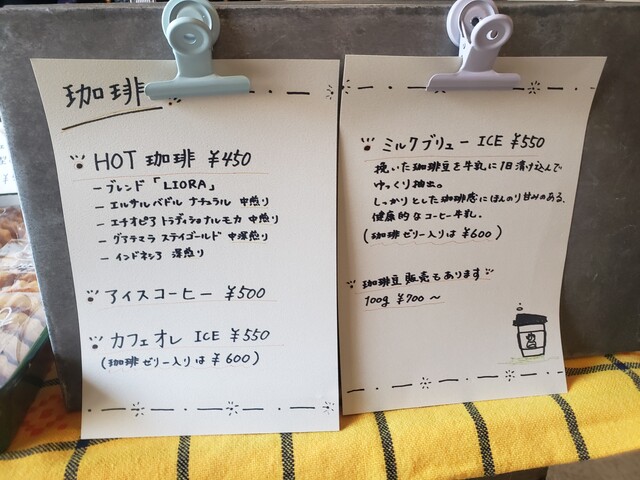 珈琲
HOT 珈琲 ¥450
ーブレンド「LIORA」
ー エルサルバドル ナチュラル 中煎り
ー エチオピア トラディショナルモカ 中煎り
ー グアテマラ ステイゴールド 中深煎り
ー インドネシア 深煎り
アイスコーヒー ¥500
カフェオレ ICE ¥550
(珈琲ゼリー入りは ¥600)
ミルクブリュー ICE ¥550
挽いた珈琲豆を牛乳に1日漬け込んで
ゆっくり抽出。
しっかりとした珈琲感にほんのり甘みのある、
健康的なコーヒー牛乳。
(珈琲ゼリー入りは ¥600)
珈琲豆販売もあります
100g ¥700 〜